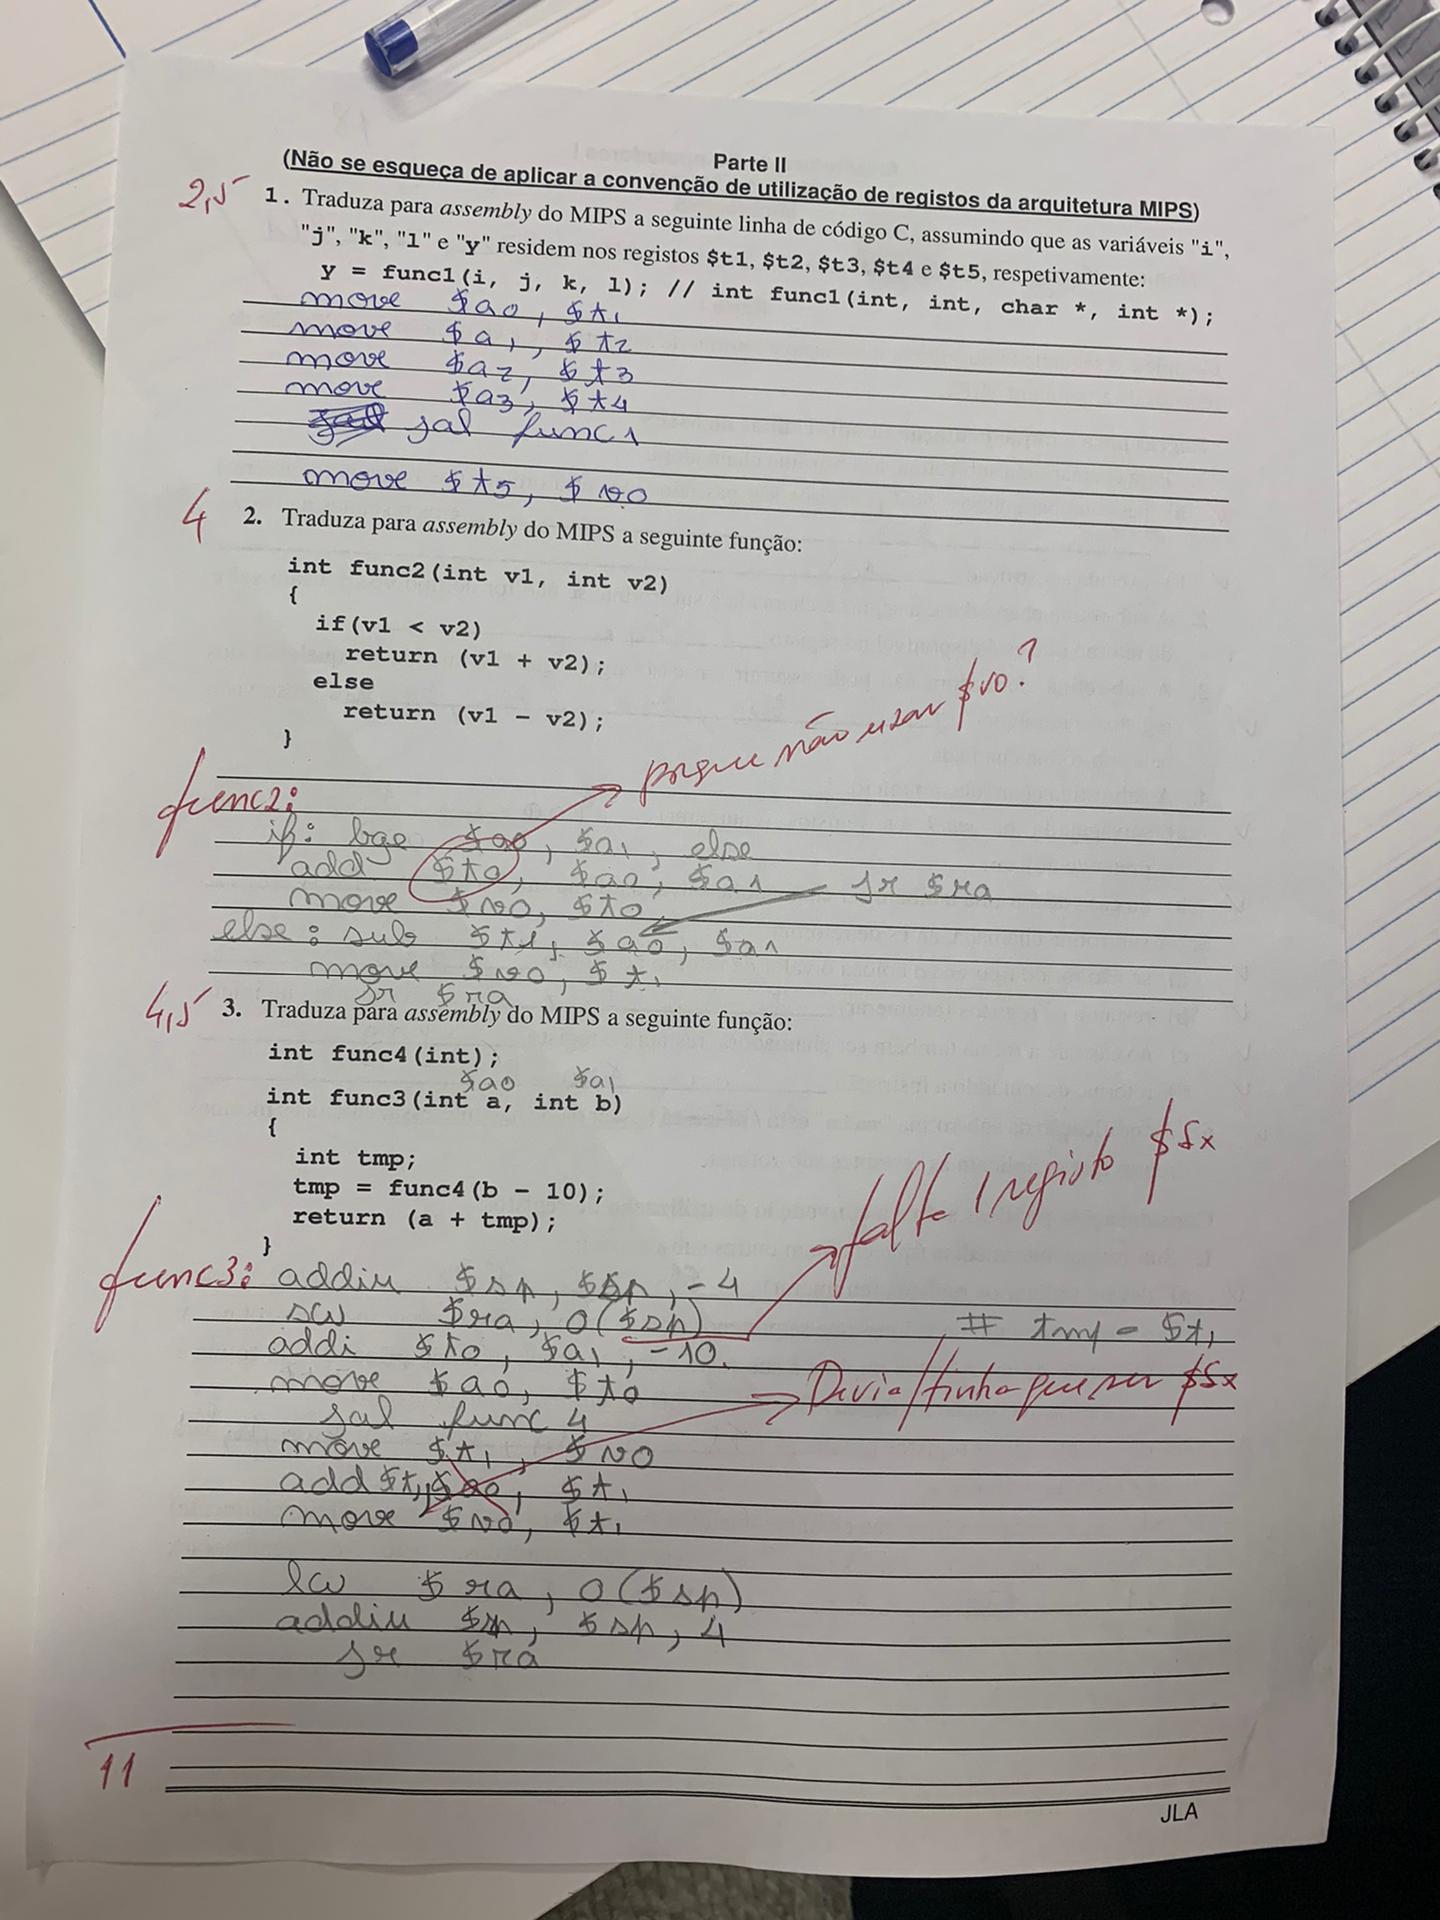 Parte II
(Não se esqueça de aplicar a convenção de utilização de registos da arquitetura MIPS)
2,5
1. Traduza para assembly do MIPS a seguinte linha de código C, assumindo que as variáveis "i",
"j", "k", "l" e "y" residem nos registos $t1, $t2, $t3, $t4 e $t5, respetivamente:
y = func1(i, j, k, l); // int func1(int, int, char *, int *);
move $a0, $t1
move $a1, $t2
move $a2, $t3
move $a3, $t4
jal func1
move $t5, $v0
4
2. Traduza para assembly do MIPS a seguinte função:
int func2(int v1, int v2)
{
if(v1 < v2)
return (v1 + v2);
else
return (v1 - v2);
}
porque não usar $v0?
func2:
if: bge $a0, $a1, else
add $t0, $a0, $a1 jr $ra
move $v0, $t0
else: sub $t1, $a0, $a1
move $v0, $t1
jr $ra
4,5
3. Traduza para assembly do MIPS a seguinte função:
int func4(int);
$a0 $a1
int func3(int a, int b)
{
int tmp;
tmp = func4(b - 10);
return (a + tmp);
}
falta 1 registo $Sx
func3: addiu $sp, $sp, -4
sw $ra, 0($sp)
# tmp = $t1
addi $t0, $a1, -10
move $a0, $t0
Devia/tinha que ser $Sx
jal func4
move $t1, $v0
add $t1, $a0, $t1
move $v0, $t1
lw $ra, 0($sp)
addiu $sp, $sp, 4
jr $ra
11
JLA